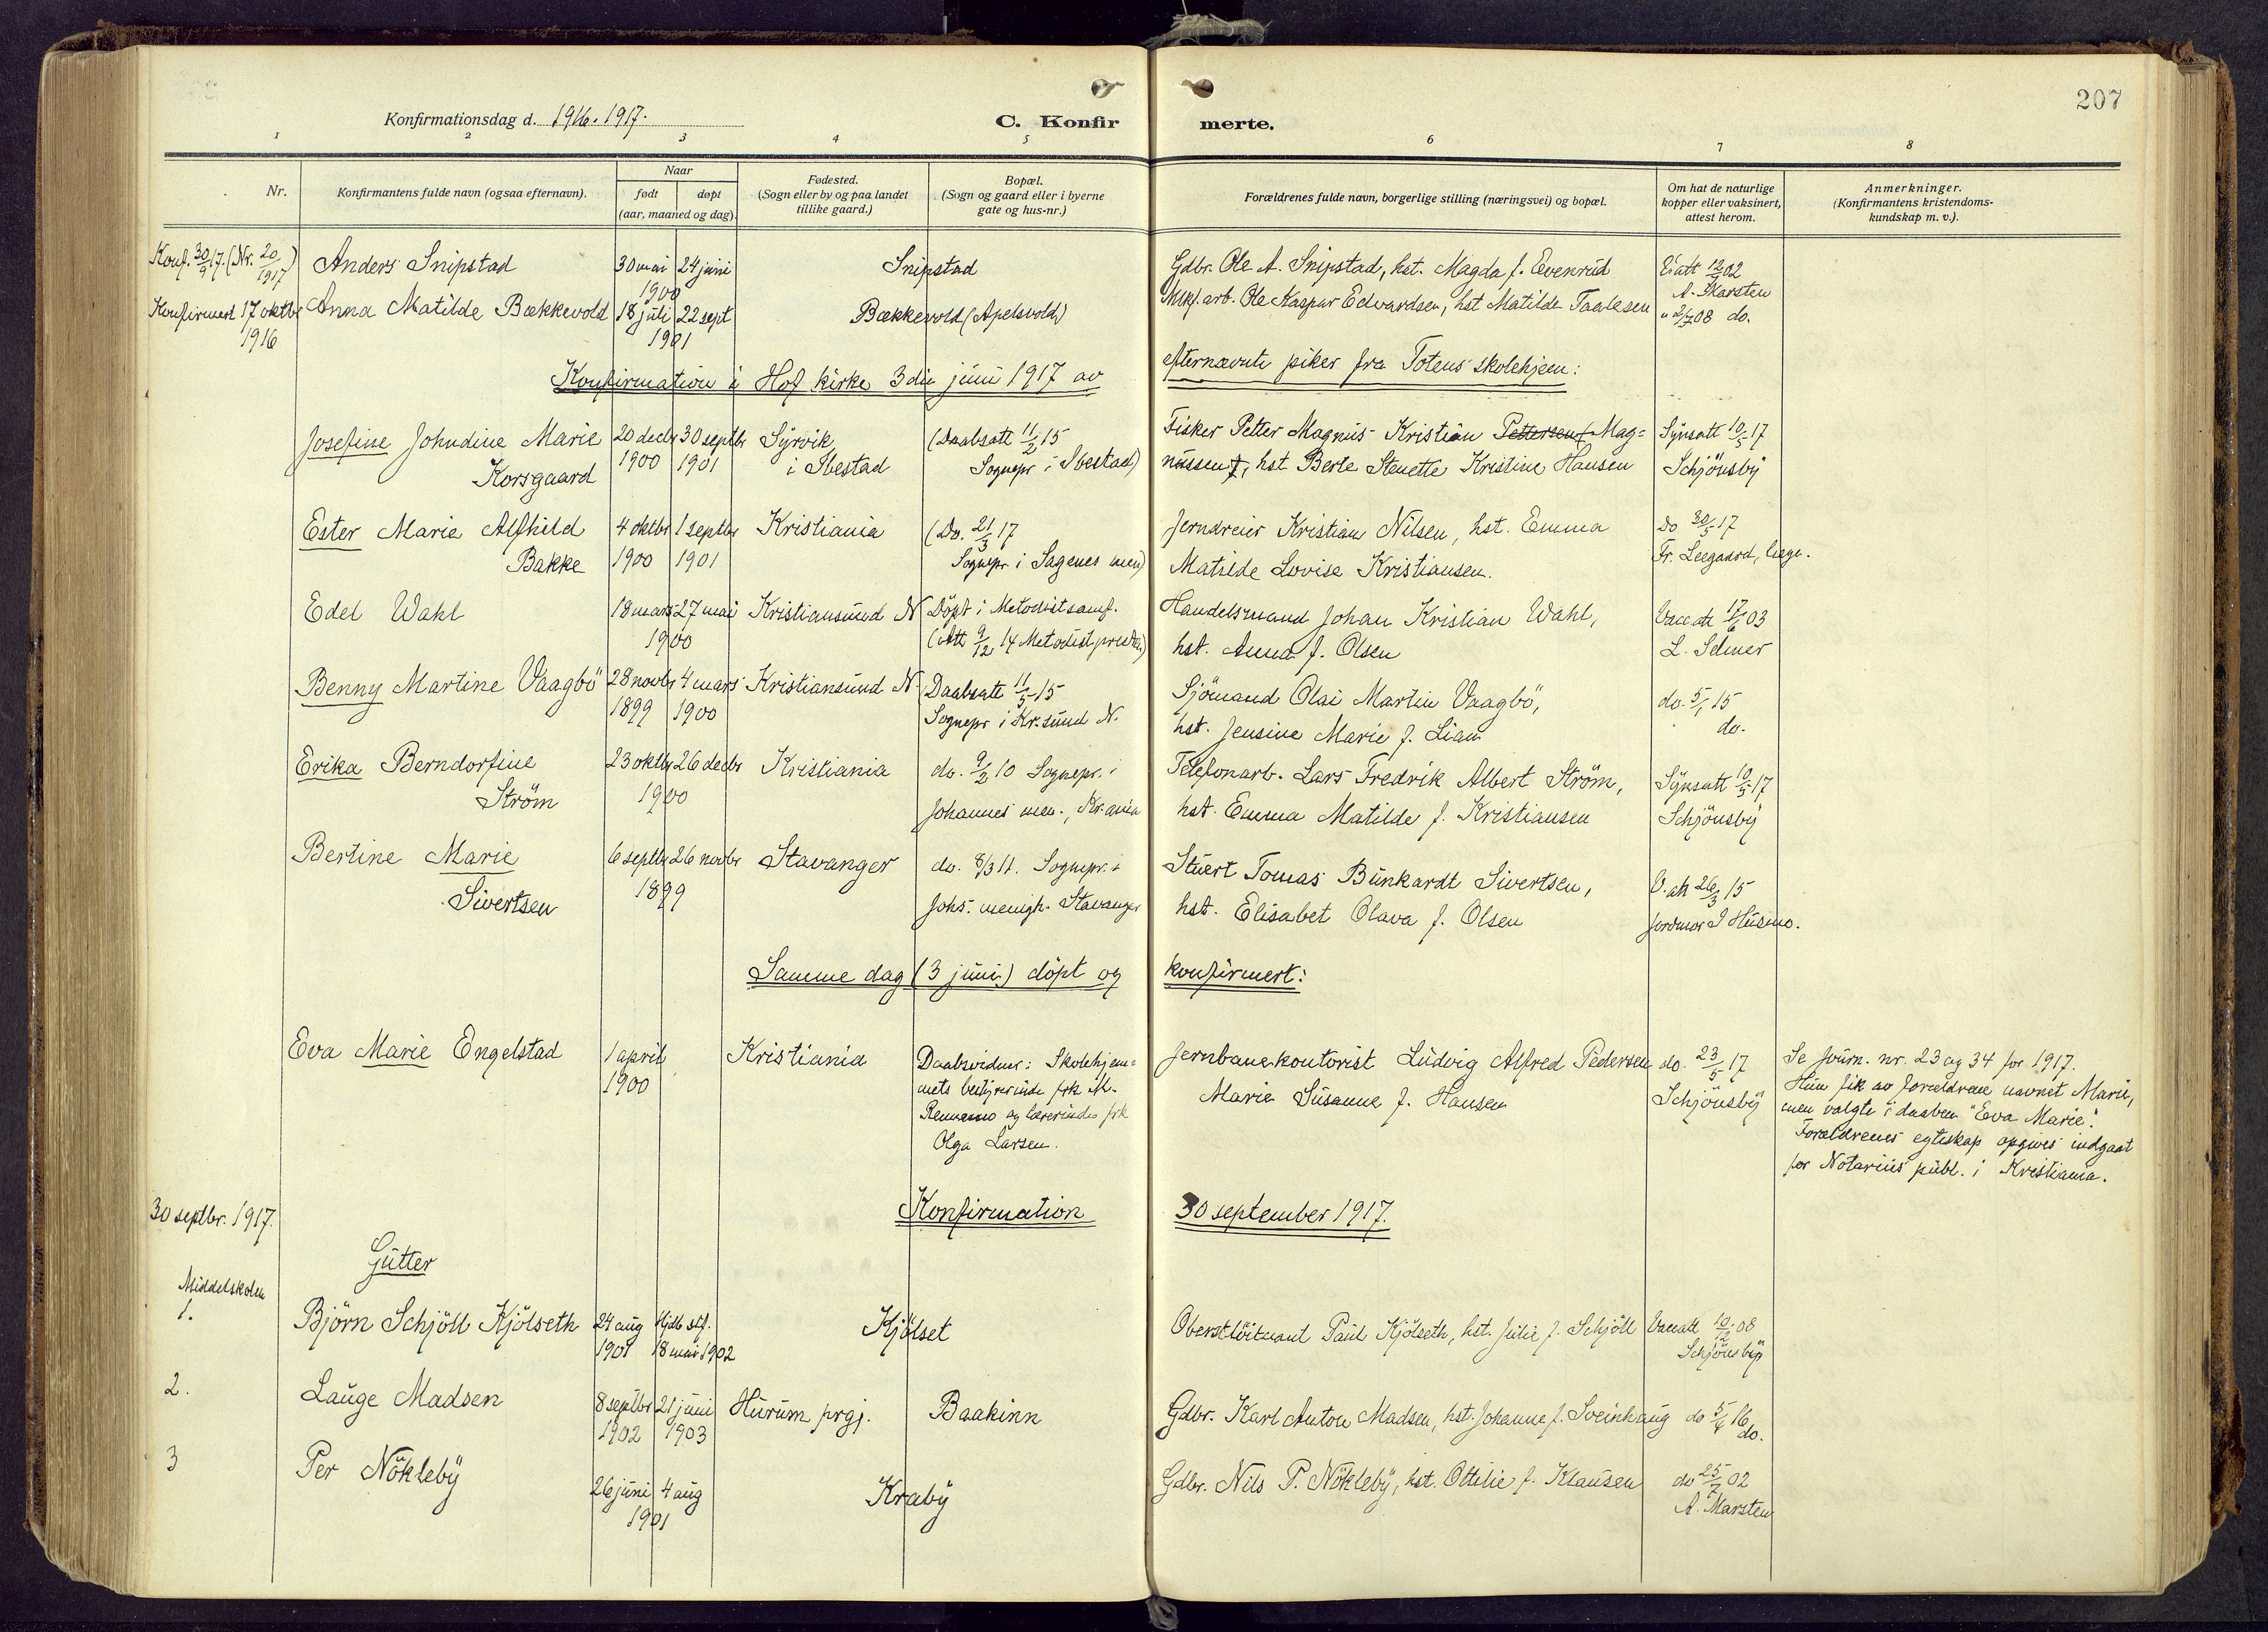 207
Konfirmationsdag d. 1916. 1917.
C. Konfirmerte.
1 2 3 4 5 6 7 8
Nr.
Konfirmantens fulde navn (ogsaa efternavn).
Naar
født døpt
(aar, maaned og dag).
Fødested.
(Sogn eller by og paa landet
tillike gaard.)
Bopæl.
(Sogn og gaard eller i byerne
gate og hus-nr.)
Forældrenes fulde navn, borgerlige stilling (næringsvei) og bopæl.
Om hat de naturlige
kopper eller vaksinert,
attest herom.
Anmerkninger.
(Konfirmantens kristendoms-
kundskap m. v.).
Konf. 30/9 17. (Nr. 20/1917) Anders Snipstad 30 mai 24 juni Snipstad Gdbr. Ole A. Snipstad, hst. Magda f. Evenrud 12/9 02
1900 A. Marsten
Konfirmert 17 oktbr Anna Matilde Bækkevold 18 juli 22 sept Bækkevold (Apelsvold) Mkf. arb. Ole Kaspar Edwardsen, hst Matilde Taalesen " 2/7 08 do.
1916 1901
Konfirmation i Hof kirke 3die juni 1917 av efternævnte piker fra Totens skolehjem:
Josefine Johndine Marie 20 decbr 30 septbr Syrvik (Daabsatt 11/2 15 Fisker Petter Magnus Kristian Pettersen (Mag= Synsatt 10/5 17
Korsgaard 1900 1901 i Ibestad Sognepr i Ibestad) nussen), hst. Berte Stenette Kristine Hansen Schjönsby
Ester Marie Alfhild 4 oktbr 1 septbr Kristiania (Do. 21/3 17 Jerndreier Kristian Nilsen, hst. Emma Do 30/5 17
Bakke 1900 1901 Sognepr i Sagenes men) Matilde Lovise Kristiansen. Fr. Leegaard, læge.
Edel Wahl 18 mars 27 mai Kristiansund N Döpt i Metodistsamf. Handelsmand Johan Kristian Wahl, Vaccatt 17/6 03
1900 (Att 9/12 14 Metodistpresten) hst. Anna f. Olsen L. Selmer
Benny Martine Vaagbö 28 novbr 4 mars Kristiansund N Daabsatt 11/5 15 Sjömand Olai Martin Vaagbö, do. 5/1 15
1899 1900 Sognepr i Kr.sund N. hst. Jensine Marie f. Lian do.
Erika Berndorfine 23 oktbr 26 decbr Kristiania do. 9/2 10 Sognepr. i Telefonarb. Lars Fredrik Albert Ström, Synsatt 10/5 17
Ström 1900 Johannes men., Kr.ania hst. Emma Matilde f. Kristiansen Schjönsby
Bertine Marie 6 septbr 26 novbr Stavanger do. 8/3 11. Sognepr. i Stuert Tomas Bunkardt Sivertsen, V. att 26/3 15
Sivertsen 1899 Johs. menigh. Stavanger hst. Elisabet Olava f. Olsen Jordmor
Samme dag (3 juni) döpt og konfirmert:
Eva Marie Engelstad 1 april Kristiania Daabsvidner: Skolehjem= Jernbanekontorist Ludvig Alfred Pedersen do. 23/5 17 Se Journ. nr. 23 og 34 for 1917.
1900 mets bestyrerinde frk M. Marie Susanne f. Hansen Schjönsby Hun fik av forældrene navnet Marie,
og lærerinde frk men valgte i daaben "Eva Marie".
Olga Larsen. Forældrenes egteskap opgives indgaat
for Notarius publ. i Kristiania.
30 septbr. 1917. Konfirmation 30 september 1917.
Gutter
Middelskolen
1. Björn Schjöll Kjölseth 24 aug Hjdb stf. Kjölset Oberstlöitnant Paul Kjölseth, hst. Julie f. Schjöll Vaccatt 10/12 08
1901 18 mai 1902 Schjönsby
2. Lauge Madsen 8 septbr 21 juni Hurum prgj. Baakinn Gdbr. Karl Anton Madsen, hst. Johanne f. Sveinhaug do 5/6 16
1902 1903 do.
3 Per Nökleby 26 juni 4 aug Kraby Gdbr. Nils P. Nökleby, hst. Ottilie f. Klausen do 25/7 02
1901 A. Marsten